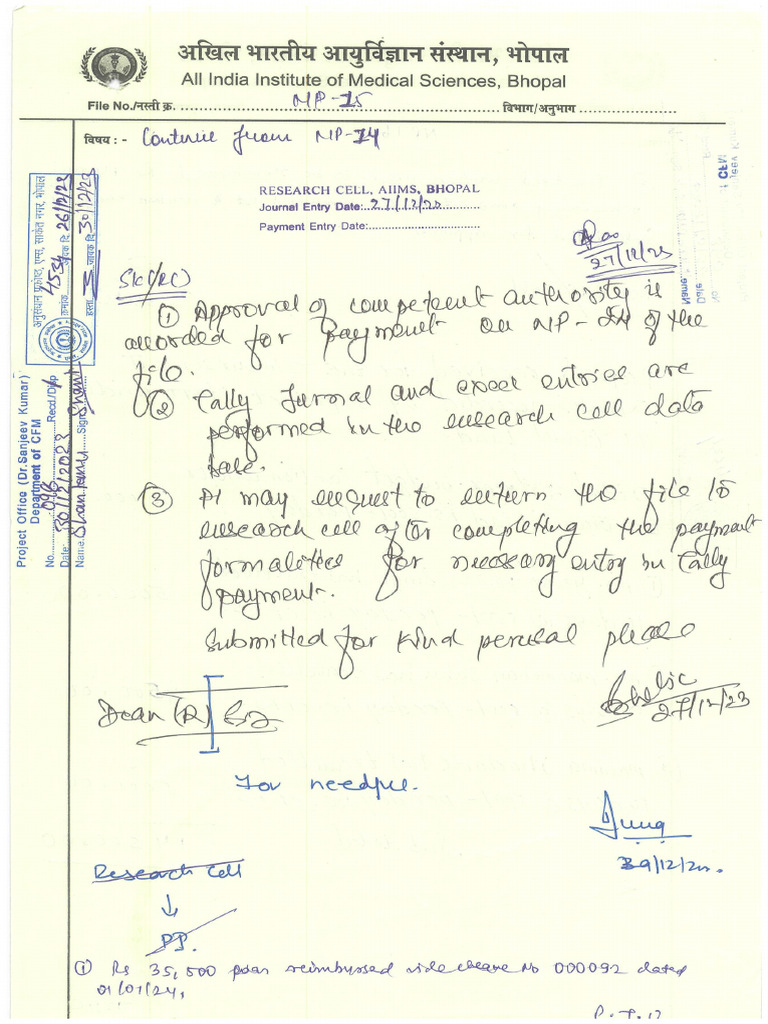 अखिल भारतीय आयुर्विज्ञान संस्थान, भोपाल
All India Institute of Medical Sciences, Bhopal
File No./नस्ती क्र. NP-15 विभाग/अनुभाग
विषय : - Continue from NP-14
RESEARCH CELL, AIIMS, BHOPAL
Journal Entry Date: 27/12/23
Payment Entry Date:
27/12/23
अनुसंधान प्रकोष्ठ, एम्स, साकेत नगर, भोपाल
क्रमांक 4534 आवक दि. 26/12/23
हस्ता. जावक दि. 30/12/23
Project Office (Dr. Sanjeev Kumar)
Department of CFM
No. Recd./Disp
Date: 30/12/2023
Name: Shantanu Sign
CFM
Name
Date
① Approval of competent authority is
accorded for payment on NP-24 of the
file.
② Tally Jurnal and excel entries are
performed in the research cell data
base.
③ PI may request to return the file to
research cell after completing the payment
formalities for necessary entry in Tally
payment.
Submitted for kind perusal please
27/12/23
Dean (R)
For needful.
Research Cell
↓
PI.
① Rs 35,500 reimbursed vide cheque No 000092 dated
01/01/24,
P.T.O